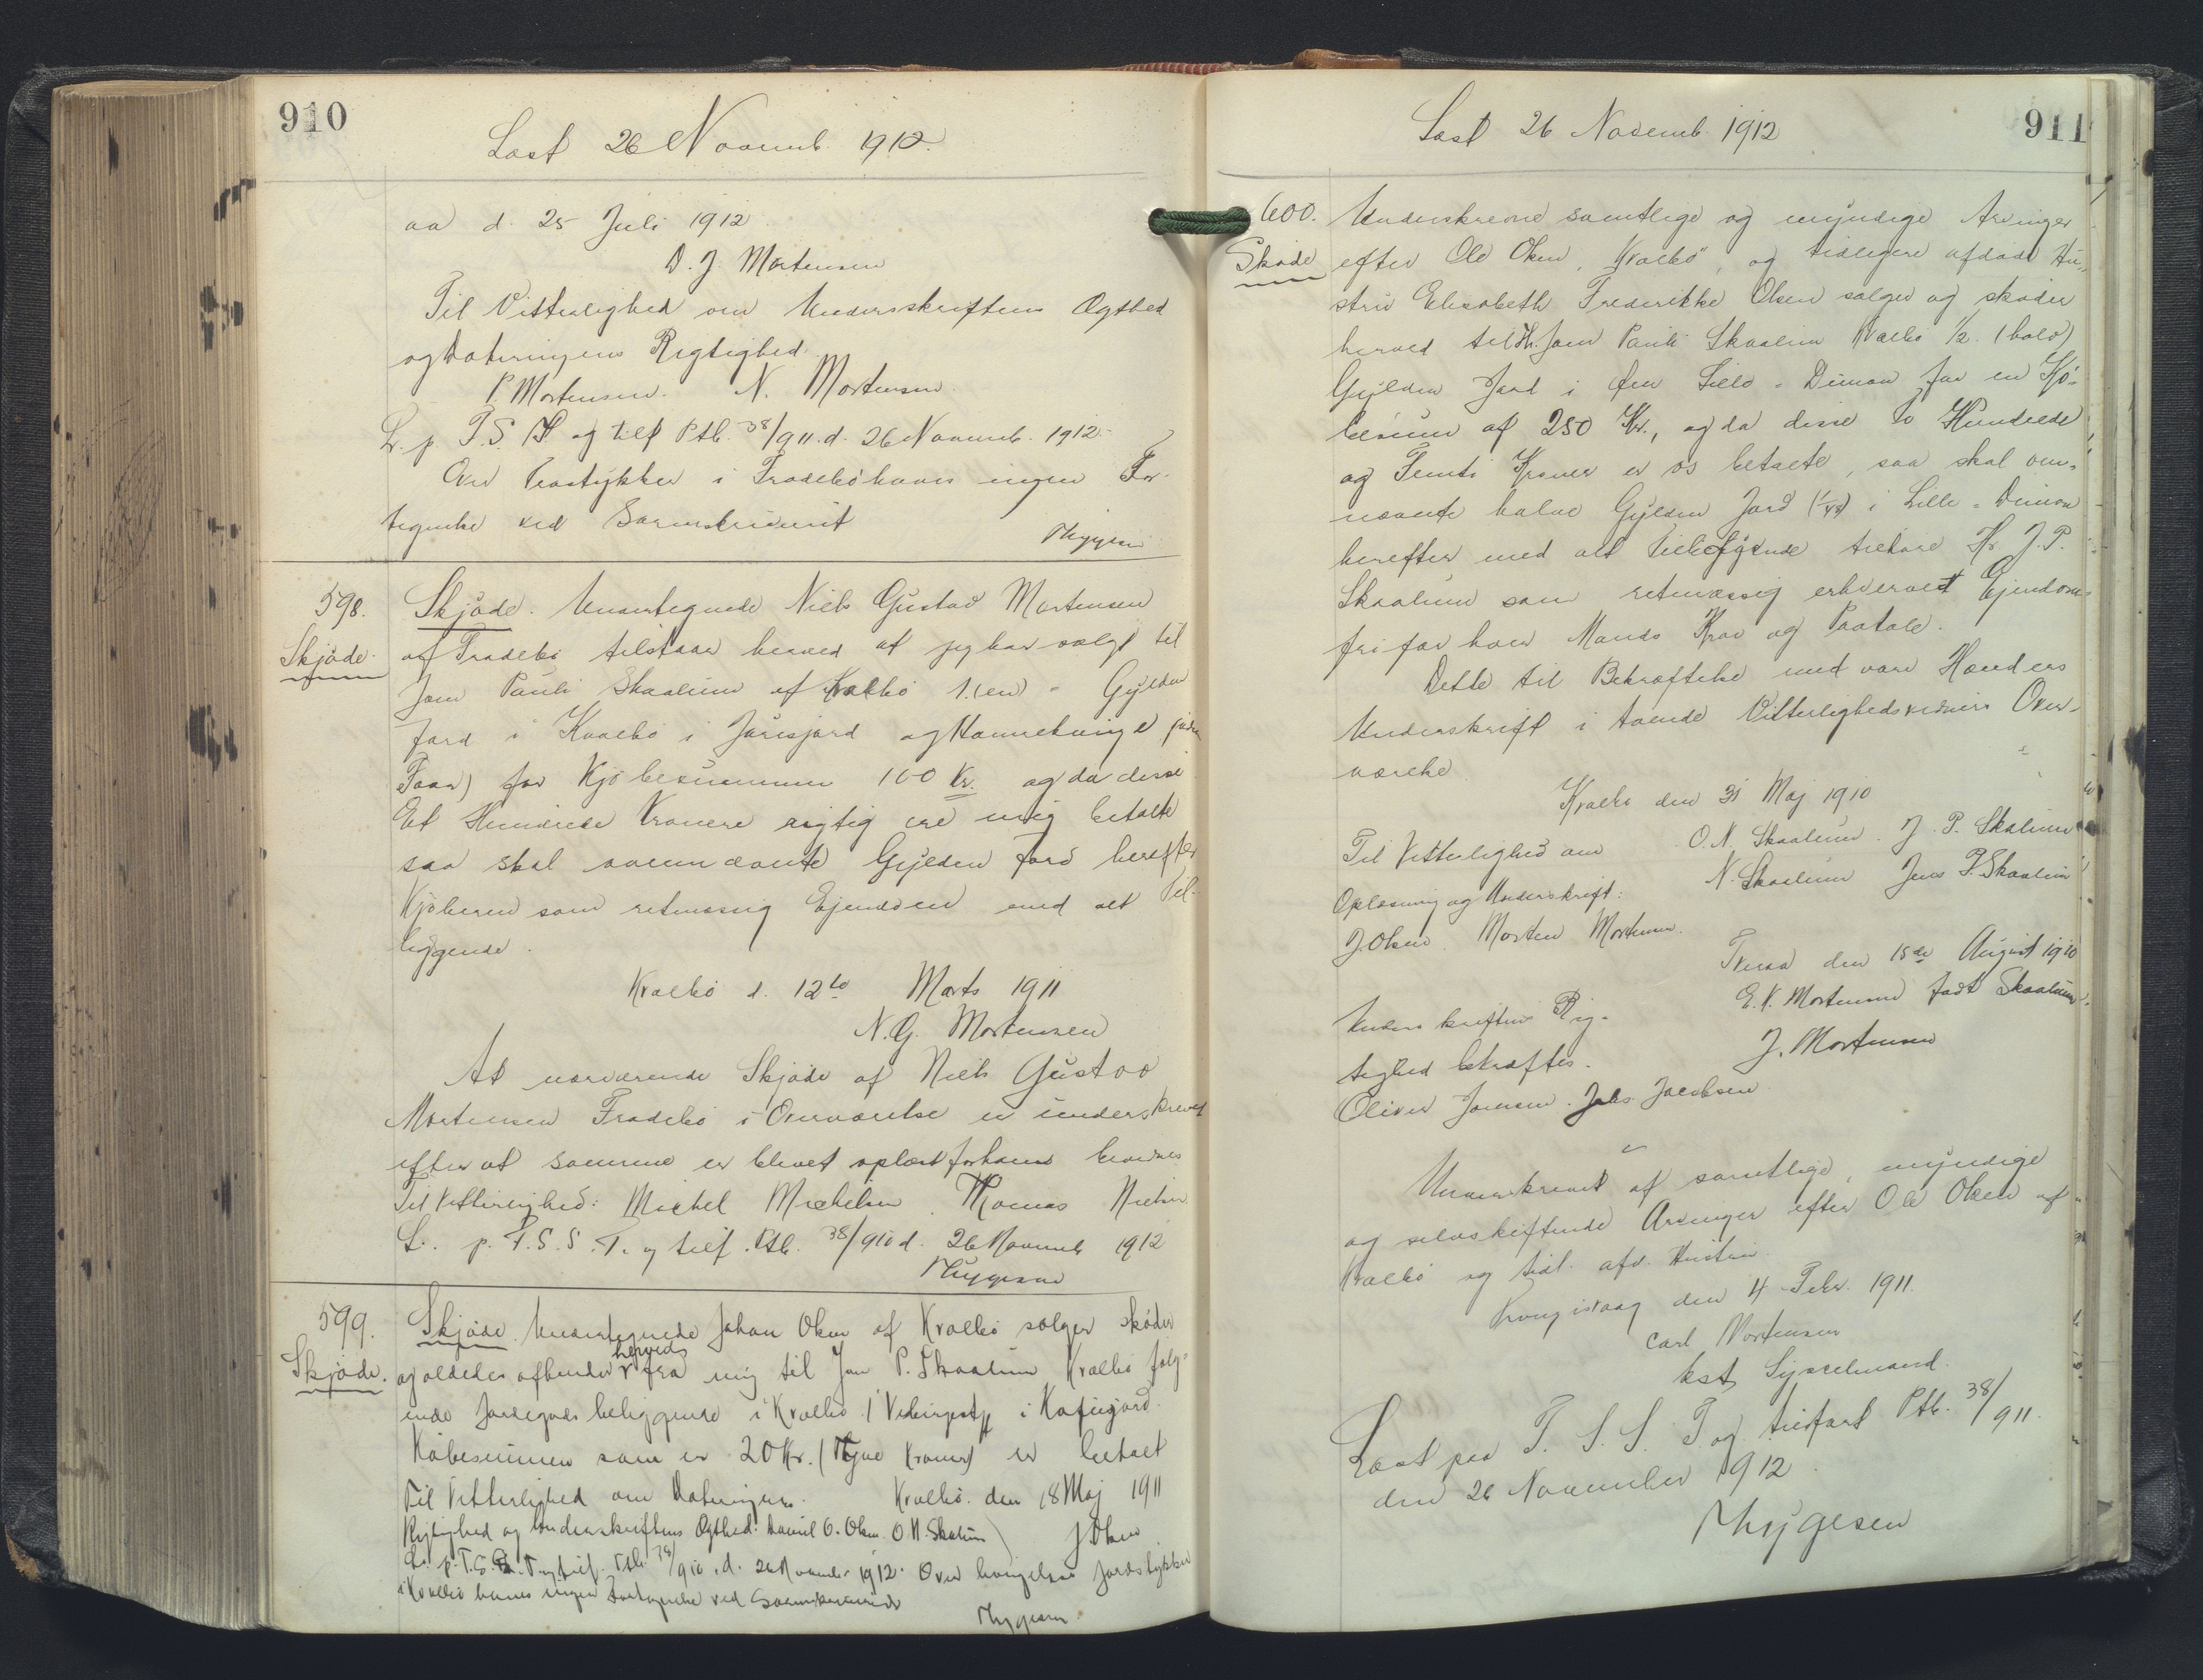 910
Læst 26 Novemb. 1912.
aa d. 25 Juli 1912
D. J. Mortensen
Til Vitterlighed om Underskriftens Ægthed
og Dateringens Rigtighed.
P. Mortensen. N. Mortensen
L. p. T. S. og tilf Ptb. 38/911. d. 26 Novemb. 1912.
Over Træstykker i Frodebö haves ingen For-
tegnelse ved Sorenskriveriet
Thygesen
598.
Skjöde.
Skjöde. Undertegnede Niels Gustav Mortensen
af Frodebö tilstaar herved at jeg har solgt til
Joen Pauli Skaalum af Kvalbö 1. (en) - Gylden
Jord i Kvalbö i Jørisjord og
Faar) for Kjöbesummen 100 Kr. og da disse
Et Hundrede Kronere rigtig ere mig betalte
saa skal ovennævnte Gylden Jord herefter
Kjöberen som retmæssig Ejendom med alt Til-
liggende.
Kvalbö d. 12te Marts 1911
N. G. Mortensen
At nærværende Skjöde af Niels Gustav
Mortensen Frodebö i Overværelse er underskrevet
efter at samme er blevet oplæst for ham bevidnes
Til Vitterlighed: Michel Michelsen. Thomas Nielsen
L. p. T. S. S. T. og tilf. Ptb. 38/910 d. 26 Novemb 1912
Thygesen
599.
Skjöde.
Skjöde. Undertegnede Johan Olsen af Kvalbö sælger skøder
og aldeles afhender herved fra mig til Joen P. Skaalum Kvalbö følg-
ende Jordegods beliggende i Kvalbö 1 i
Köbesummen som er 20 Kr. (Tyve Kroner) er betalt
Til Vitterlighed om Dateringens Kvalbö. den 18 Maj 1911
Rigtighed og Underskriftens Ægthed: Daniel O. Olsen. O. N. Skalum J Olsen
L. p. T. S. S. T. og tilf. Ptb. 38/910. d. 26 Novemb. 1912. Over Jordstykker
i Kvalbö haves ingen Fortegnelse ved Sorenskriveriet
Thygesen
911
Læst 26 Novemb. 1912
600.
Skøde
Underskrevne samtlige og myndige Arvinger
efter Ole Olsen, Kvalbö, og tidligere afdøde Hu-
stru Elisabeth Frederikke Olsen sælger og skøder
herved til Hr. Joen Pauli Skaalum Kvalbö 1/2. (halv)
Gylden Jord i Øen Lille-Dimon for en Kjö-
besum af 250 Kr., og da disse To Hundrede
og Femti Kroner er os betalte, saa skal om-
nævnte halve Gylden Jord (1/48) i Lille-Dimon
herefter med alt Tilliggende tilhøre Hr J. P.
Skaalum som retmæssig erhvervet Ejendom
fri for hver Mands Krav og Paatale.
Dette til Bekræftelse med vore Hænders
Underskrift i tvende Vitterlighedsvidners Over-
værelse
Kvalbö den 31 Maj 1910
Til Vitterlighed om O. N. Skaalum. J. P. Skalum
Oplæsning og Underskrift: N. Skaalum Jens P. Skaalum
J. Olsen. Morten Mortensen.
Tveraa den 15de August 1910
Underskriftens Rig- E. K. Mortensen født Skaalum.
tighed bekræftes. J. Mortensen
Oliver Joensen. Johs. Jacobsen
Underskrevet af samtlige, myndige
og selvskiftende Arvinger efter Ole Olsen af
Kvalbö og tidl. afd. Hustru.
Trongisvaag den 4 Febr. 1911.
Carl Mortensen
kst. Sysselmand.
Læst paa T. S. S. T og tilført Ptb. 38/911.
den 26 November 1912
Thygesen